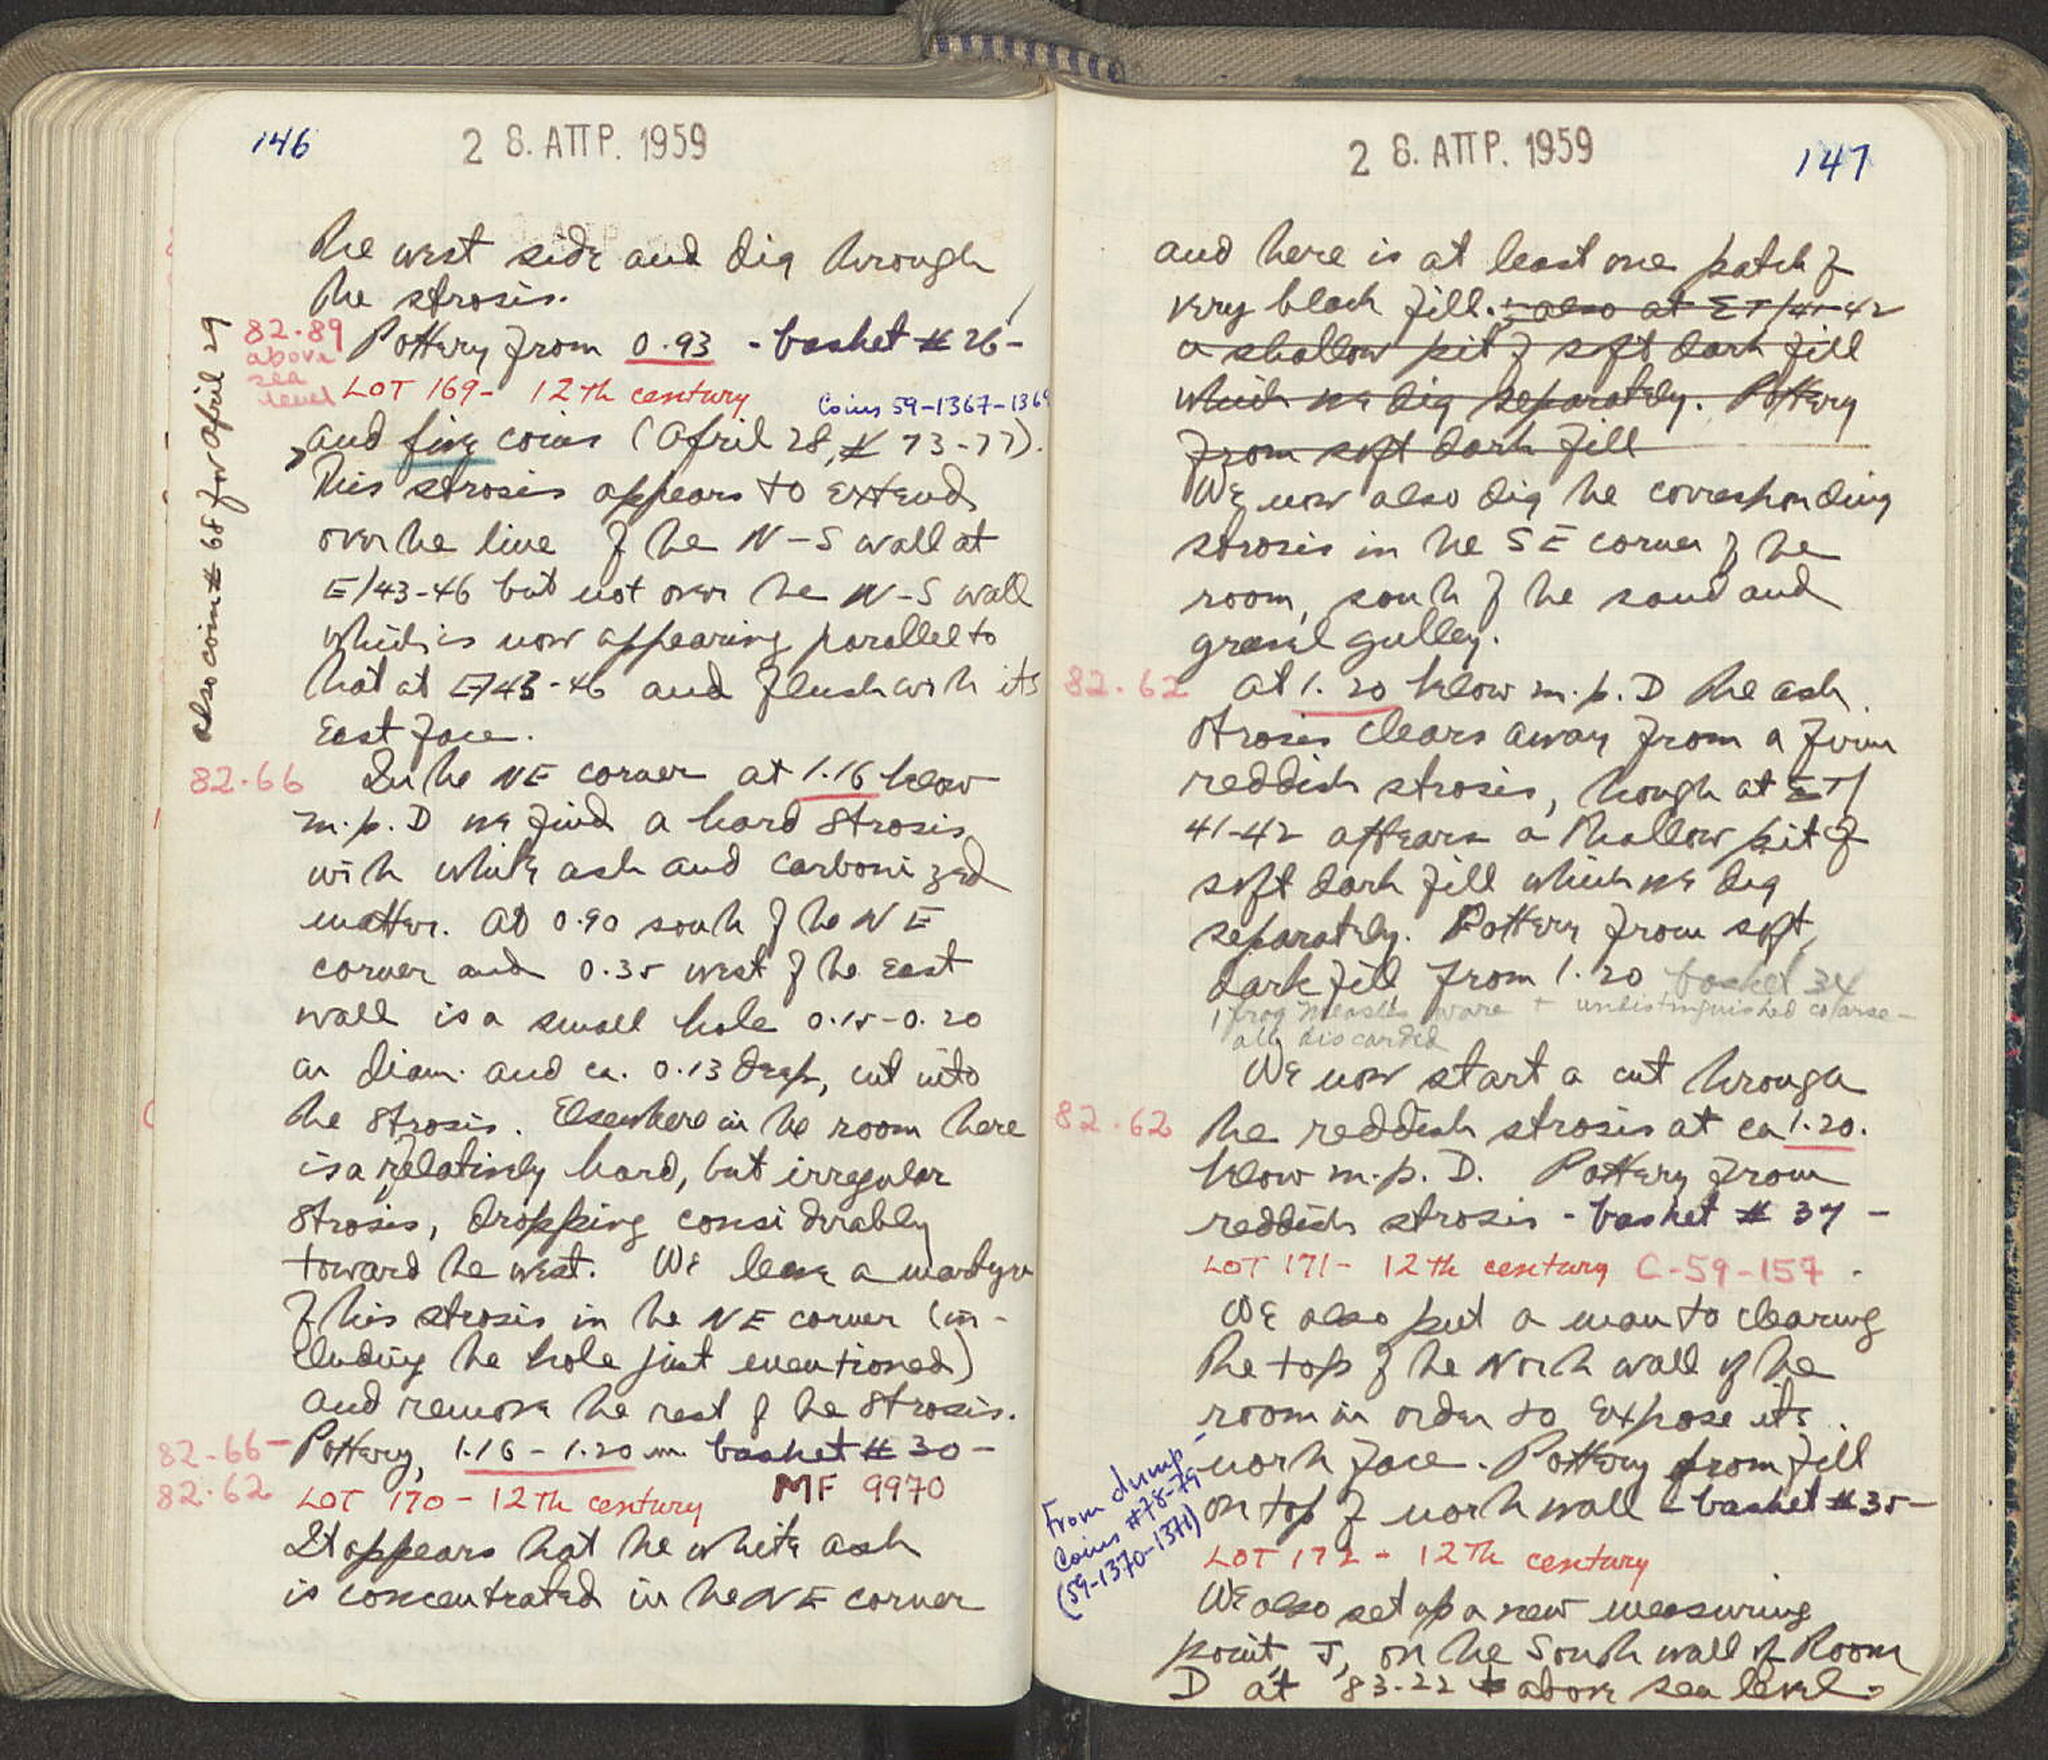 146
28. ΑΠΡ. 1959
the west side and dig through
the strosis.
82.89
above
sea
level
Pottery from 0.93 - basket # 26 -
LOT 169 - 12th century
Coins 59-1367-1369
and five coins (April 28, # 73-77).
also coin # 68 for April 29
This strosis appears to extend
over the line of the N-S wall at
E/43-46 but not over the N-S wall
which is now appearing parallel to
that at E/43-46 and flush with its
East face.
82.66
In the NE corner at 1.16 below
m.p. D we find a hard strosis
with white ash and carbonized
matter. At 0.90 south of the NE
corner and 0.35 west of the East
wall is a small hole 0.15-0.20
in diam. and ca. 0.13 deep, cut into
the strosis. Elsewhere in the room there
is a relatively hard, but irregular
strosis, dropping considerably
toward the west. We leave a martyr
of this strosis in the NE corner (in-
cluding the hole just mentioned)
and remove the rest of the strosis.
82.66-
82.62
Pottery, 1.16 - 1.20 m. basket # 30 -
LOT 170 - 12th century
MF 9970
It appears that the white ash
is concentrated in the NE corner
28. ΑΠΡ. 1959
147
and there is at least one patch of
very black fill. ; also at ΣΤ/41-42
a shallow pit of soft dark fill
which we dig separately. Pottery
from soft dark fill
We now also dig the corresponding
strosis in the SE corner of the
room, south of the sand and
gravel gulley.
82.62
At 1.20 below m.p. D the ash
strosis clears away from a firm
reddish strosis, though at ΣΤ/
41-42 appears a shallow pit of
soft dark fill which we dig
separately. Pottery from soft,
dark fill from 1.20 basket 34
1 frag Measles ware + undistinguished coarse -
all discarded
We now start a cut through
82.62
the reddish strosis at ca 1.20.
below m.p. D. Pottery from
reddish strosis - basket # 37 -
LOT 171 - 12th century C-59-157
We also put a man to clearing
the top of the North wall of the
room in order to expose its
north face. Pottery from fill
on top of north wall - basket # 35 -
From dump -
Coins #78-79
(59-1370-1371)
LOT 172 - 12th century
We also set up a new measuring
point, J, on the South wall of Room
D at 83.22 above sea level.